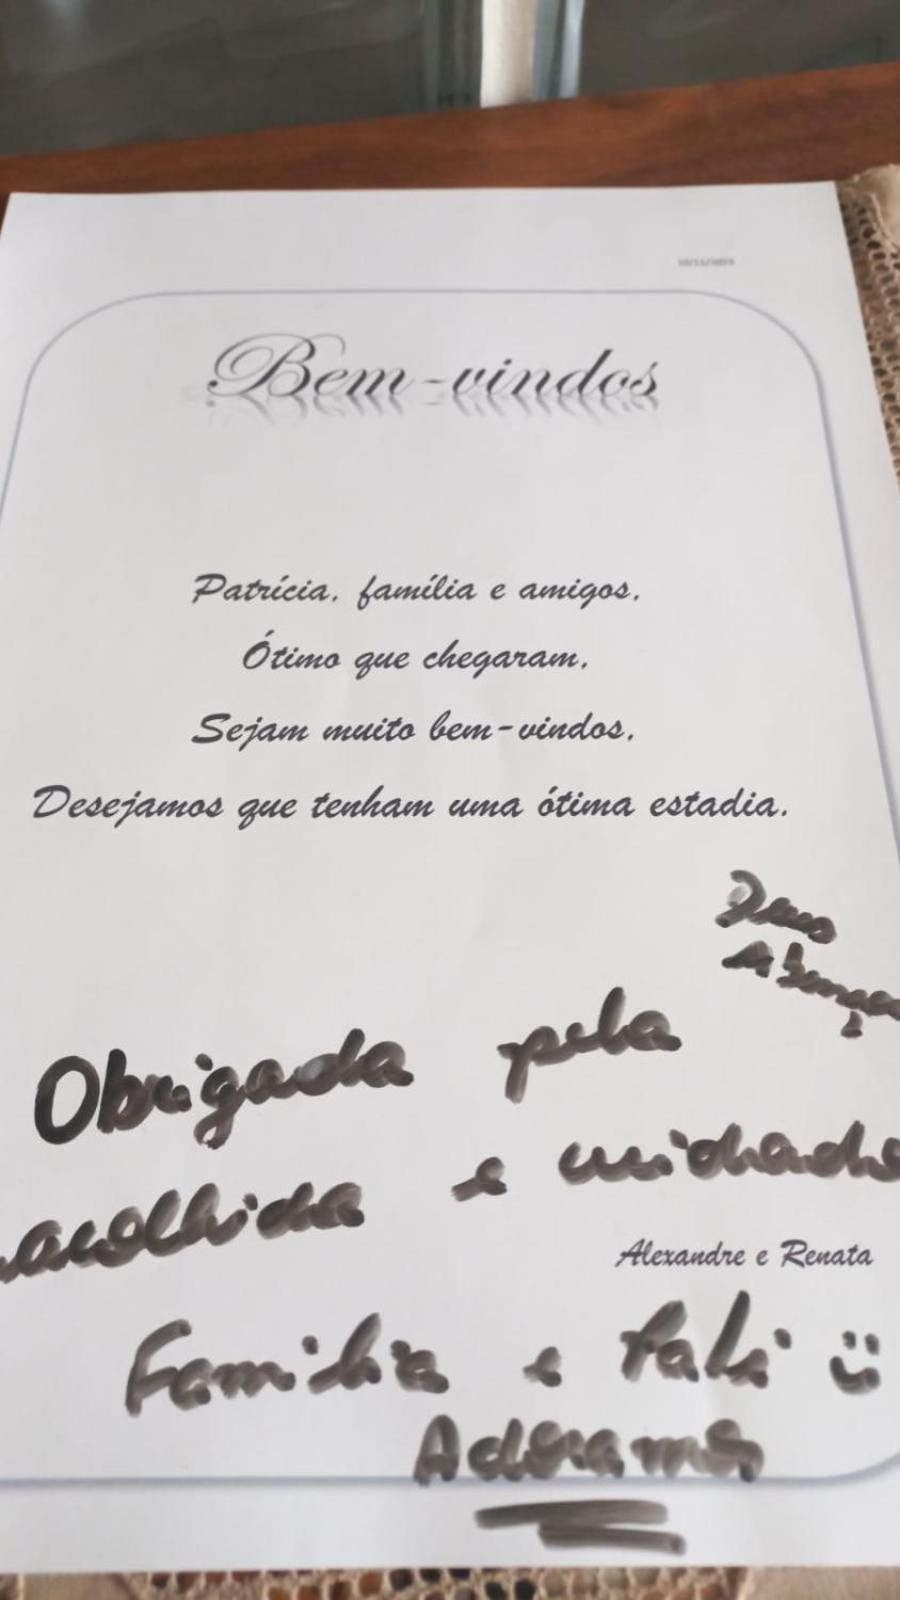 Bem-vindos
Patrícia, família e amigos,
Ótimo que chegaram,
Sejam muito bem-vindos,
Desejamos que tenham uma ótima estadia.
Deus
Obrigada pela
acolhida e cuidado
Alexandre e Renata
Família e
Adoramos